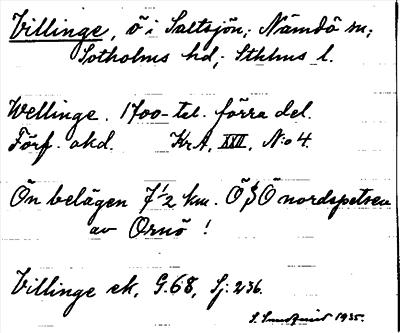 Villinge, ö i Saltsjön; Nämdö sn;
Sotholms hd; Sthlms l.
Wellinge. 1700-tal. förra del.
Förf. okd. KrA, XXII, N:o 4.
Ön belägen 7 1/2 km. ÖSÖ nordspetsen
av Ornö !
Villinge ek, G.68, Sj: 236.
S. Sundqvist 1935.